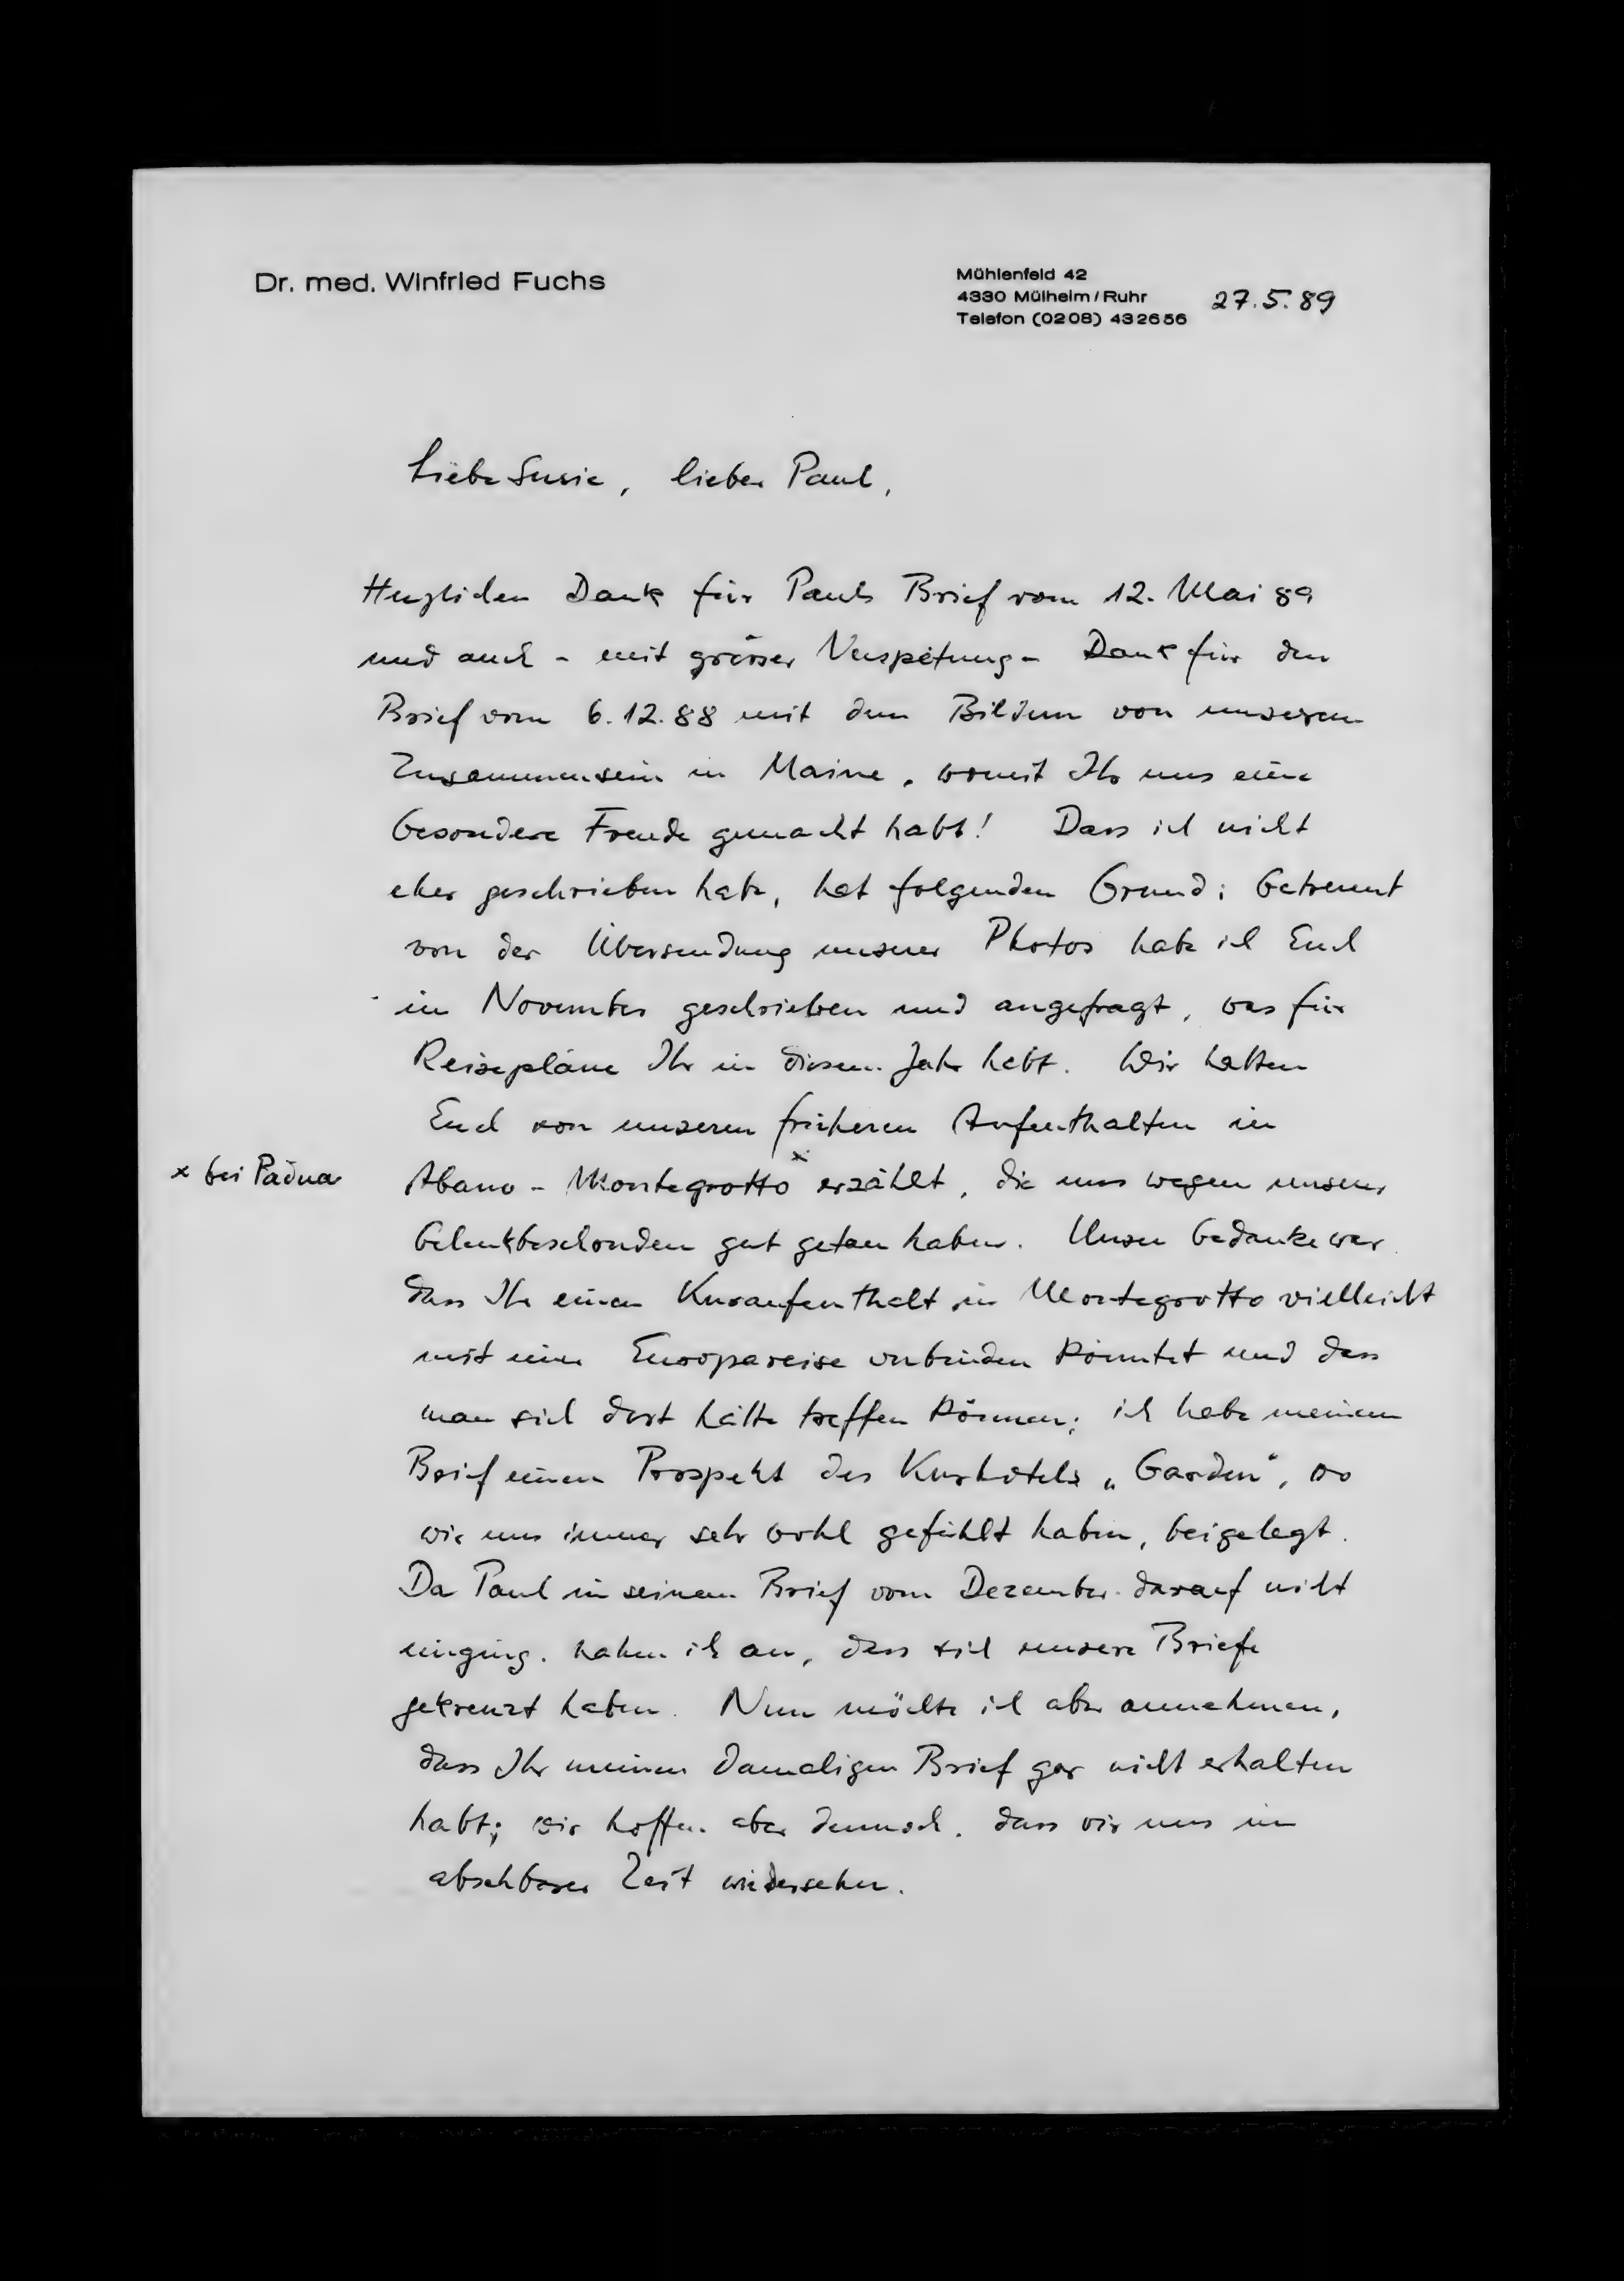 Dr. med. Winfried Fuchs
Mühlenfeld 42
4330 Mülheim/Ruhr
Telefon (0208) 432656
27.5.89
Liebe Susie, lieber Paul,
Herzlichen Dank für Pauls Brief vom 12. Mai 89
und auch - mit grosser Verspätung - Dank für den
Brief vom 6.12.88 mit den Bildern von unserem
Zusammensein in Maine, womit Ihr uns eine
besondere Freude gemacht habt! Dass ich nicht
eher geschrieben habe, hat folgenden Grund: Getrennt
von der Übersendung unserer Photos habe ich Euch
im November geschrieben und angefragt, was für
Reisepläne Ihr in diesem Jahr habt. Wir hatten
Euch von unseren früheren Aufenthalten in
Abano - Montegrotto x erzählt, die uns wegen unserer
x bei Padua
Gelenkbeschwerden gut getan haben. Unser Gedanke war
dass Ihr einen Kuraufenthalt in Montegrotto vielleicht
mit einer Europareise verbinden könntet und dass
man sich dort hätte treffen können; ich habe meinem
Brief einen Prospekt des Kurhotels „Garden", wo
wir uns immer sehr wohl gefühlt haben, beigelegt.
Da Paul in seinem Brief vom Dezember darauf nicht
einging, nahm ich an, dass sich unsere Briefe
gekreuzt haben. Nun möchte ich aber annehmen,
dass Ihr meinen damaligen Brief gar nicht erhalten
habt; wir hoffen aber dennoch, dass wir uns in
absehbarer Zeit wiedersehen.